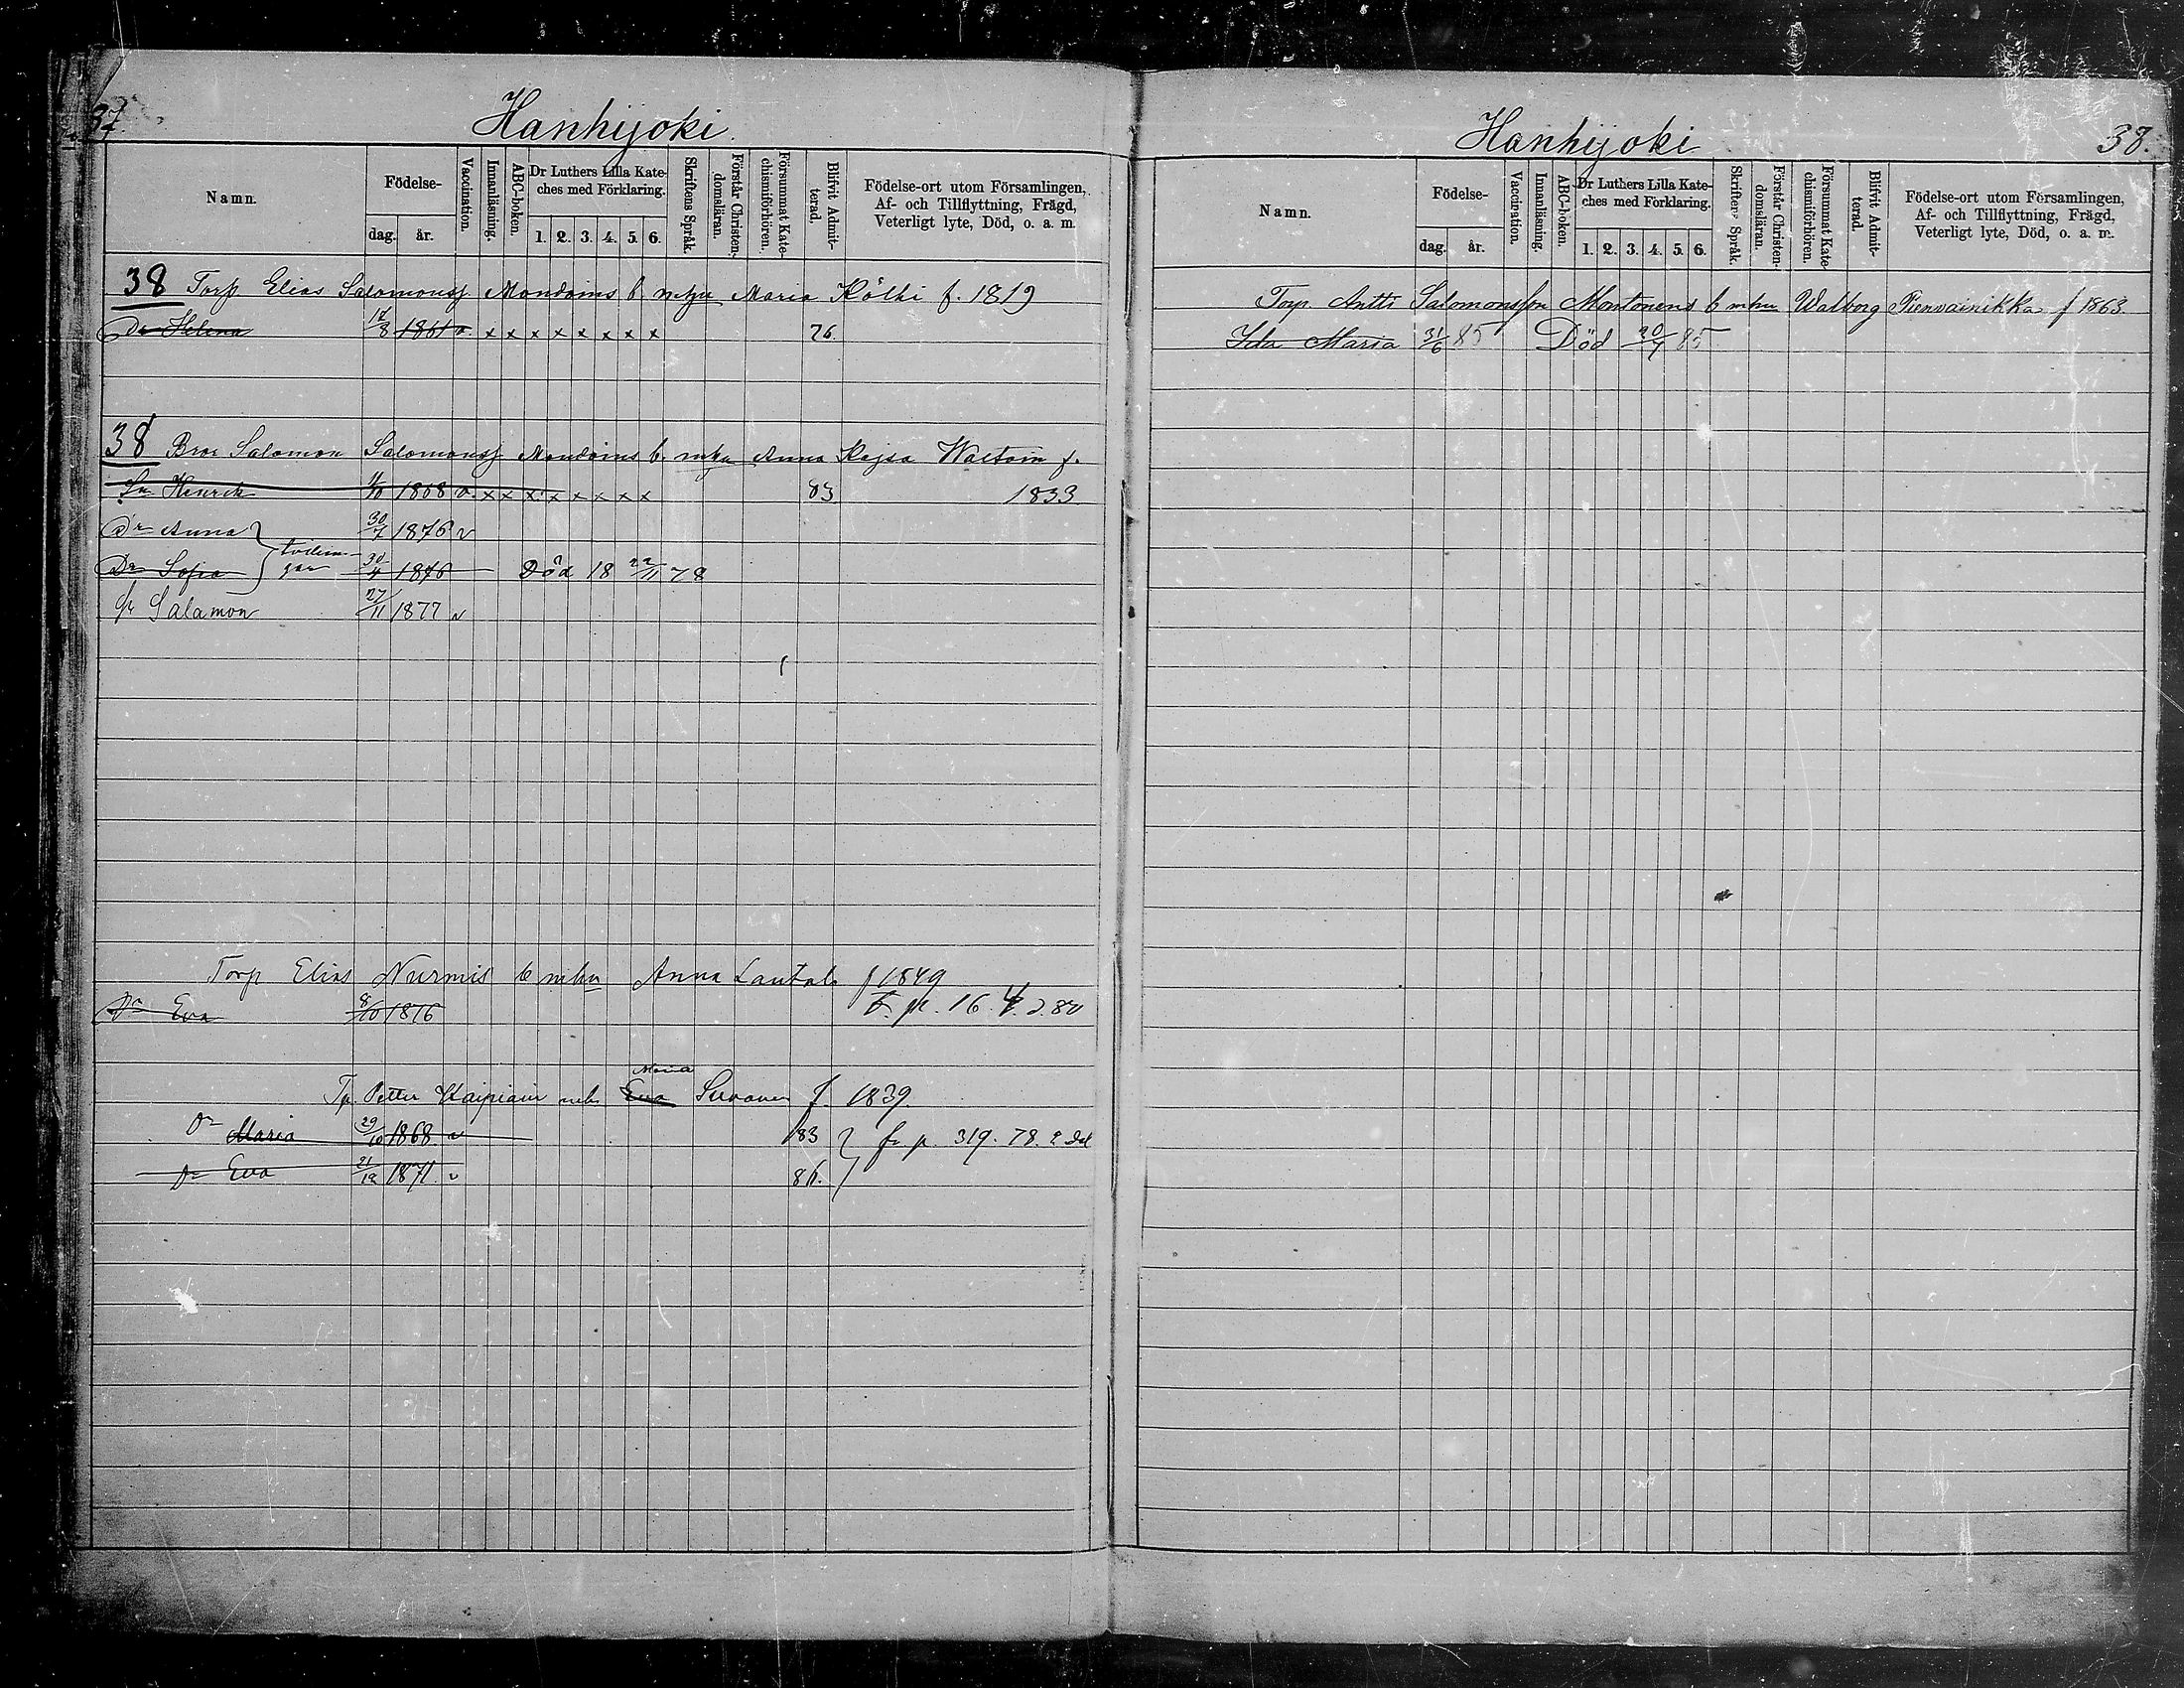 37.
Hanhijoki.
Namn.
Födelse-
dag.
år.
Vaccination.
Innanläsning.
ABC-boken.
Dr Luthers Lilla Kate-
ches med Förklaring.
1. 2. 3. 4. 5. 6.
Skriftens Språk.
Förstår Christen-
domsläran.
Försummat Kate-
chismiförhören.
Blifvit Admit-
terad.
Födelse-ort utom Församlingen,
Af- och Tillflyttning, Frägd,
Veterligt lyte, Död, o. a. m.
38 Torp Elias Salomonsf. Mondoins b. mhu Maria Kölhi f. 1819
Dr Helena 18/8 1861 v. x x x x x x x x 76.
38 Bror Salomon Salomonsf Mondoins b. mhu Anna Kajsa f.
Sn Henrik 1868 v. x x x x x x x x 83 1833
Dr Anna 30/7 1876 v
Dr Sofia 1876 Död 18 22/11 78
Sn Salamon 27/11 1877 v
Torp Elias Nurmis b mhu Anna f 1849
Dr Eva 8/10 1876 16. 80
Maria
Tp. Petter mhu Eva f. 1839.
Dr Maria 29/10 1868 v 83 fr p. 319. 78. 2 del
Dr Eva 21/12 1871. v 86.
Hanhijoki
38.
Namn.
Födelse-
dag.
år.
Vaccination.
Innanläsning.
ABC-boken.
Dr Luthers Lilla Kate-
ches med Förklaring.
1. 2. 3. 4. 5. 6.
Skriftens Språk.
Förstår Christen-
domsläran.
Försummat Kate-
chismiförhören.
Blifvit Admit-
terad.
Födelse-ort utom Församlingen,
Af- och Tillflyttning, Frägd,
Veterligt lyte, Död, o. a. m.
Torp Antti Salomonsson Montonens b mhu Walborg Pienvainikka f 1863.
Ida Maria 31/6 85 Död 20/7 85